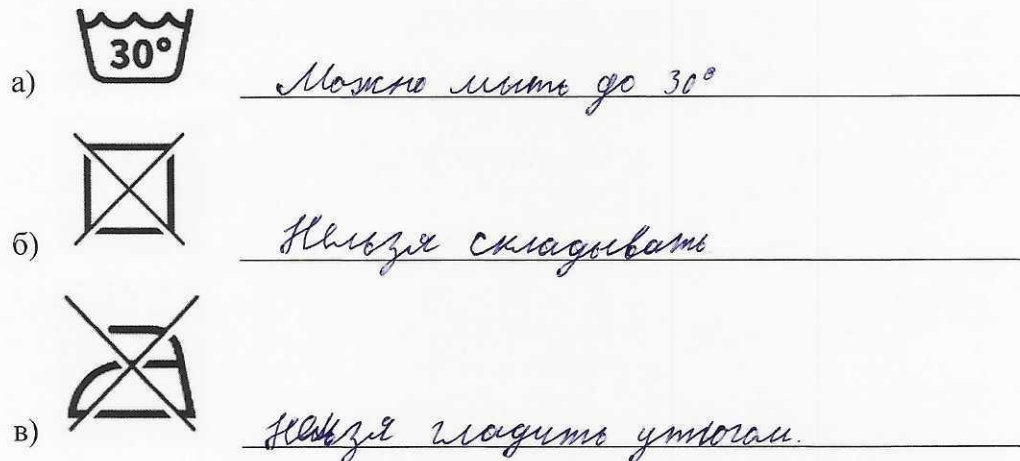 30°
а) Можно мыть до 30°
б) Нельзя складывать
в) Нельзя гладить утюгом.